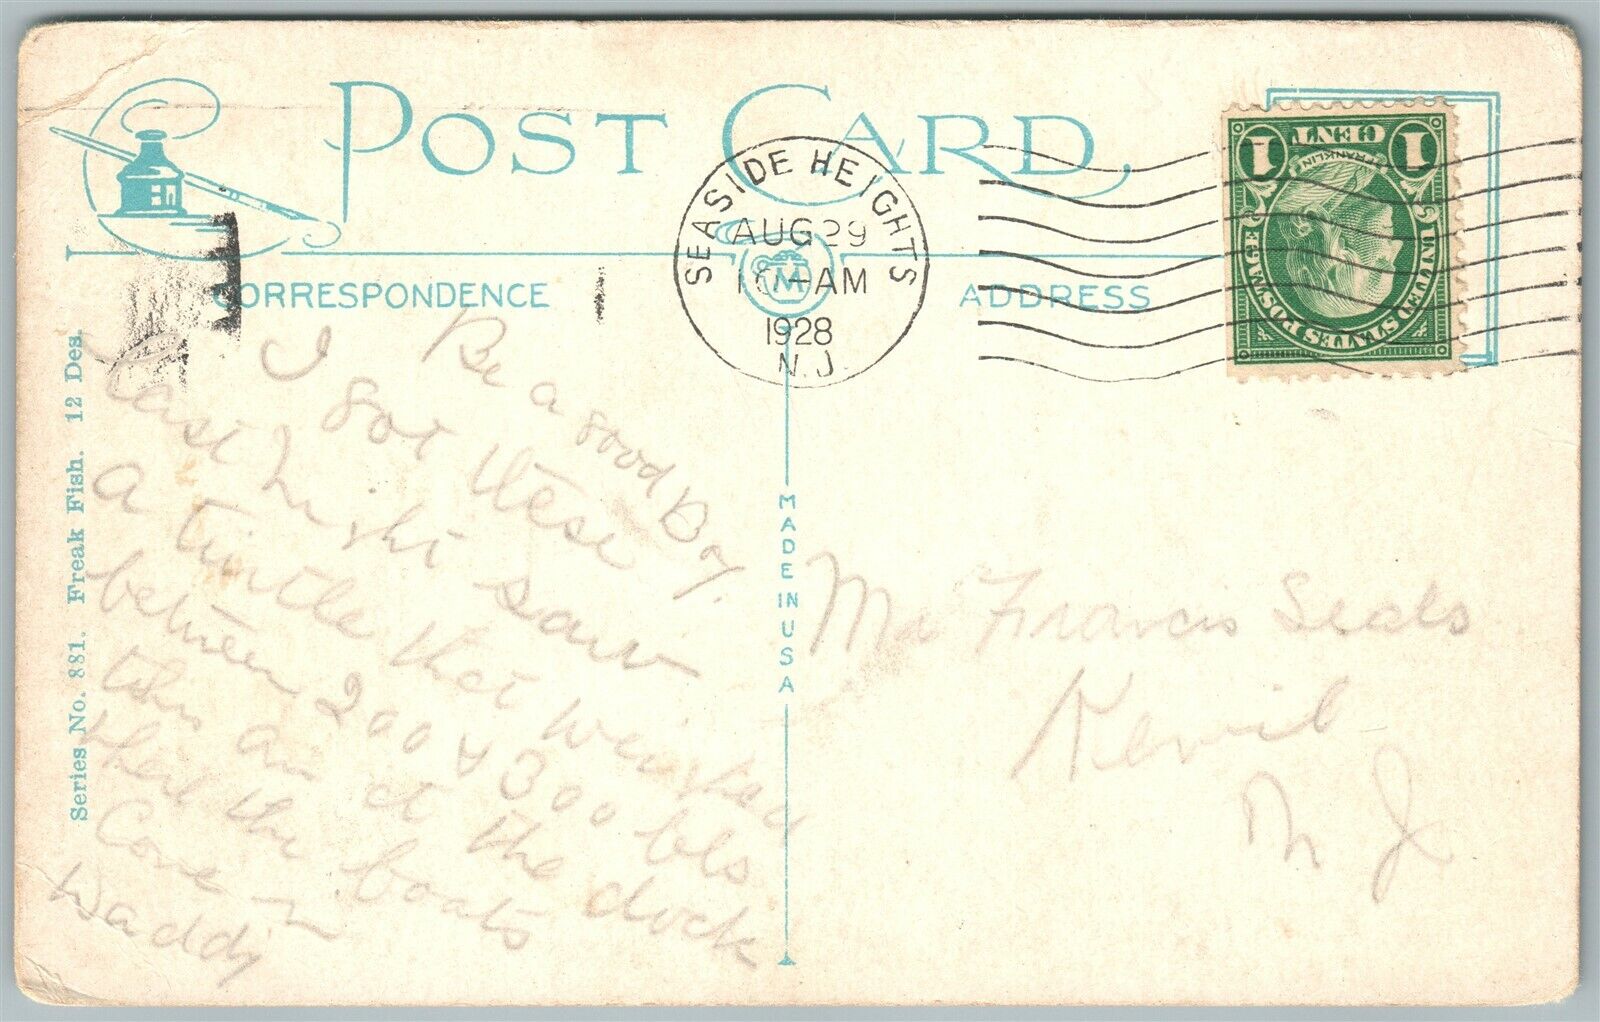 POST CARD.
CORRESPONDENCE
ADDRESS
SEASIDE HEIGHTS
AUG 29
10-AM
1928
N.J.
1 CENT 1
FRANKLIN
UNITED STATES POSTAGE
M
MADE IN USA
Series No. 881. Freak Fish. 12 Des.
Be a good Boy.
I got these
last night saw
a turtle that
between 200 & 300 lbs
this am at the dock
where the boats
Come in
Waddy
Mr Francis Seals
Kenvil
N J